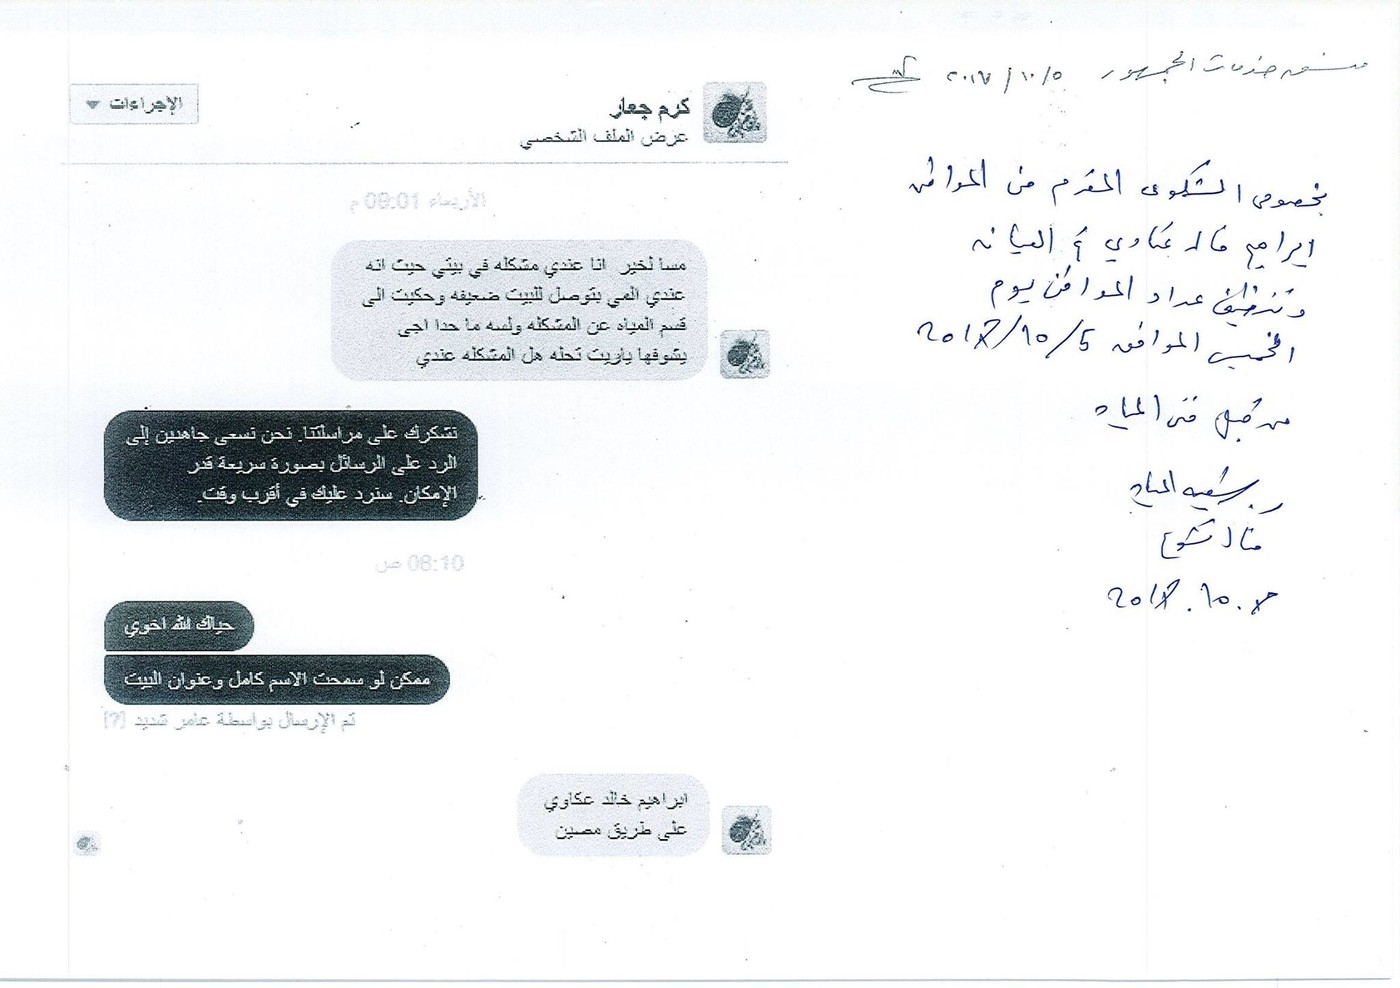 منسق خدمات الجمهور ٢٠١٧/١٠/٥
بخصوص الشكوى المقدم من المواطن
ابراهيم خالد عكاوي تم الصيانه
وتنظيف عداد المواطن يوم
الخميس الموافق 2017/10/5
من قبل فني المياه
رئيس شعبه المياه
2017.10.8
كرم جعار
عرض الملف الشخصي
الإجراءات
الأربعاء 09:01 م
مسا لخير انا عندي مشكله في بيتي حيت انه
عندي المي بتوصل للبيت ضعيفه وحكيت الى
قسم المياه عن المشكله ولسه ما حدا اجى
يشوفها ياريت تحله هل المشكله عندي
نشكرك على مراسلتنا. نحن نسعى جاهدين إلى
الرد على الرسائل بصورة سريعة قدر
الإمكان. سنرد عليك في أقرب وقت.
08:10 ص
حياك الله اخوي
ممكن لو سمحت الاسم كامل وعنوان البيت
تم الإرسال بواسطة عامر شديد [?]
ابراهيم خالد عكاوي
على طريق مصين